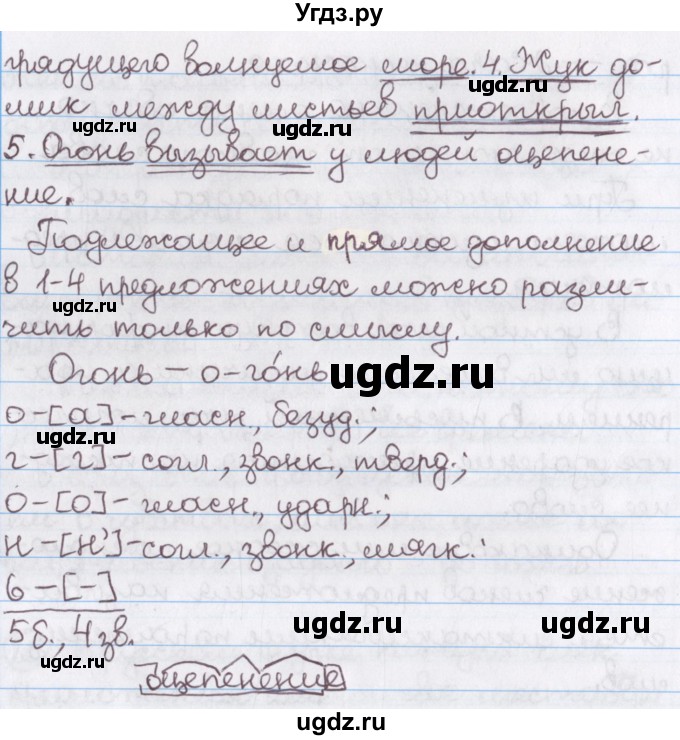 Угдз.ру
грядущего волнуемое море. 4. Жук до-
мик между листьев приоткрыл.
ugdz.ru ugdz.ru
5. Огонь вызывает у людей оцепене-
ние.
ugdz.ru
Подлежащее и прямое дополнение
в 1-4 предложениях можно разли-
ugdz.ru
чить только по смыслу.
Огонь – о-го́нь
ugdz.ru
о-[а]-гласн., безуд.;
ugdz.ru
г-[г]-согл., звонк., тверд.;
о-[о]-гласн., ударн.;
ugdz.ru
н-[н']-согл., звонк., мягк.
ь-[-]
5б, 4 зв.
ugdz.ru ugdz.ru
ugdz.ru
оцепенение
ugdz.ru